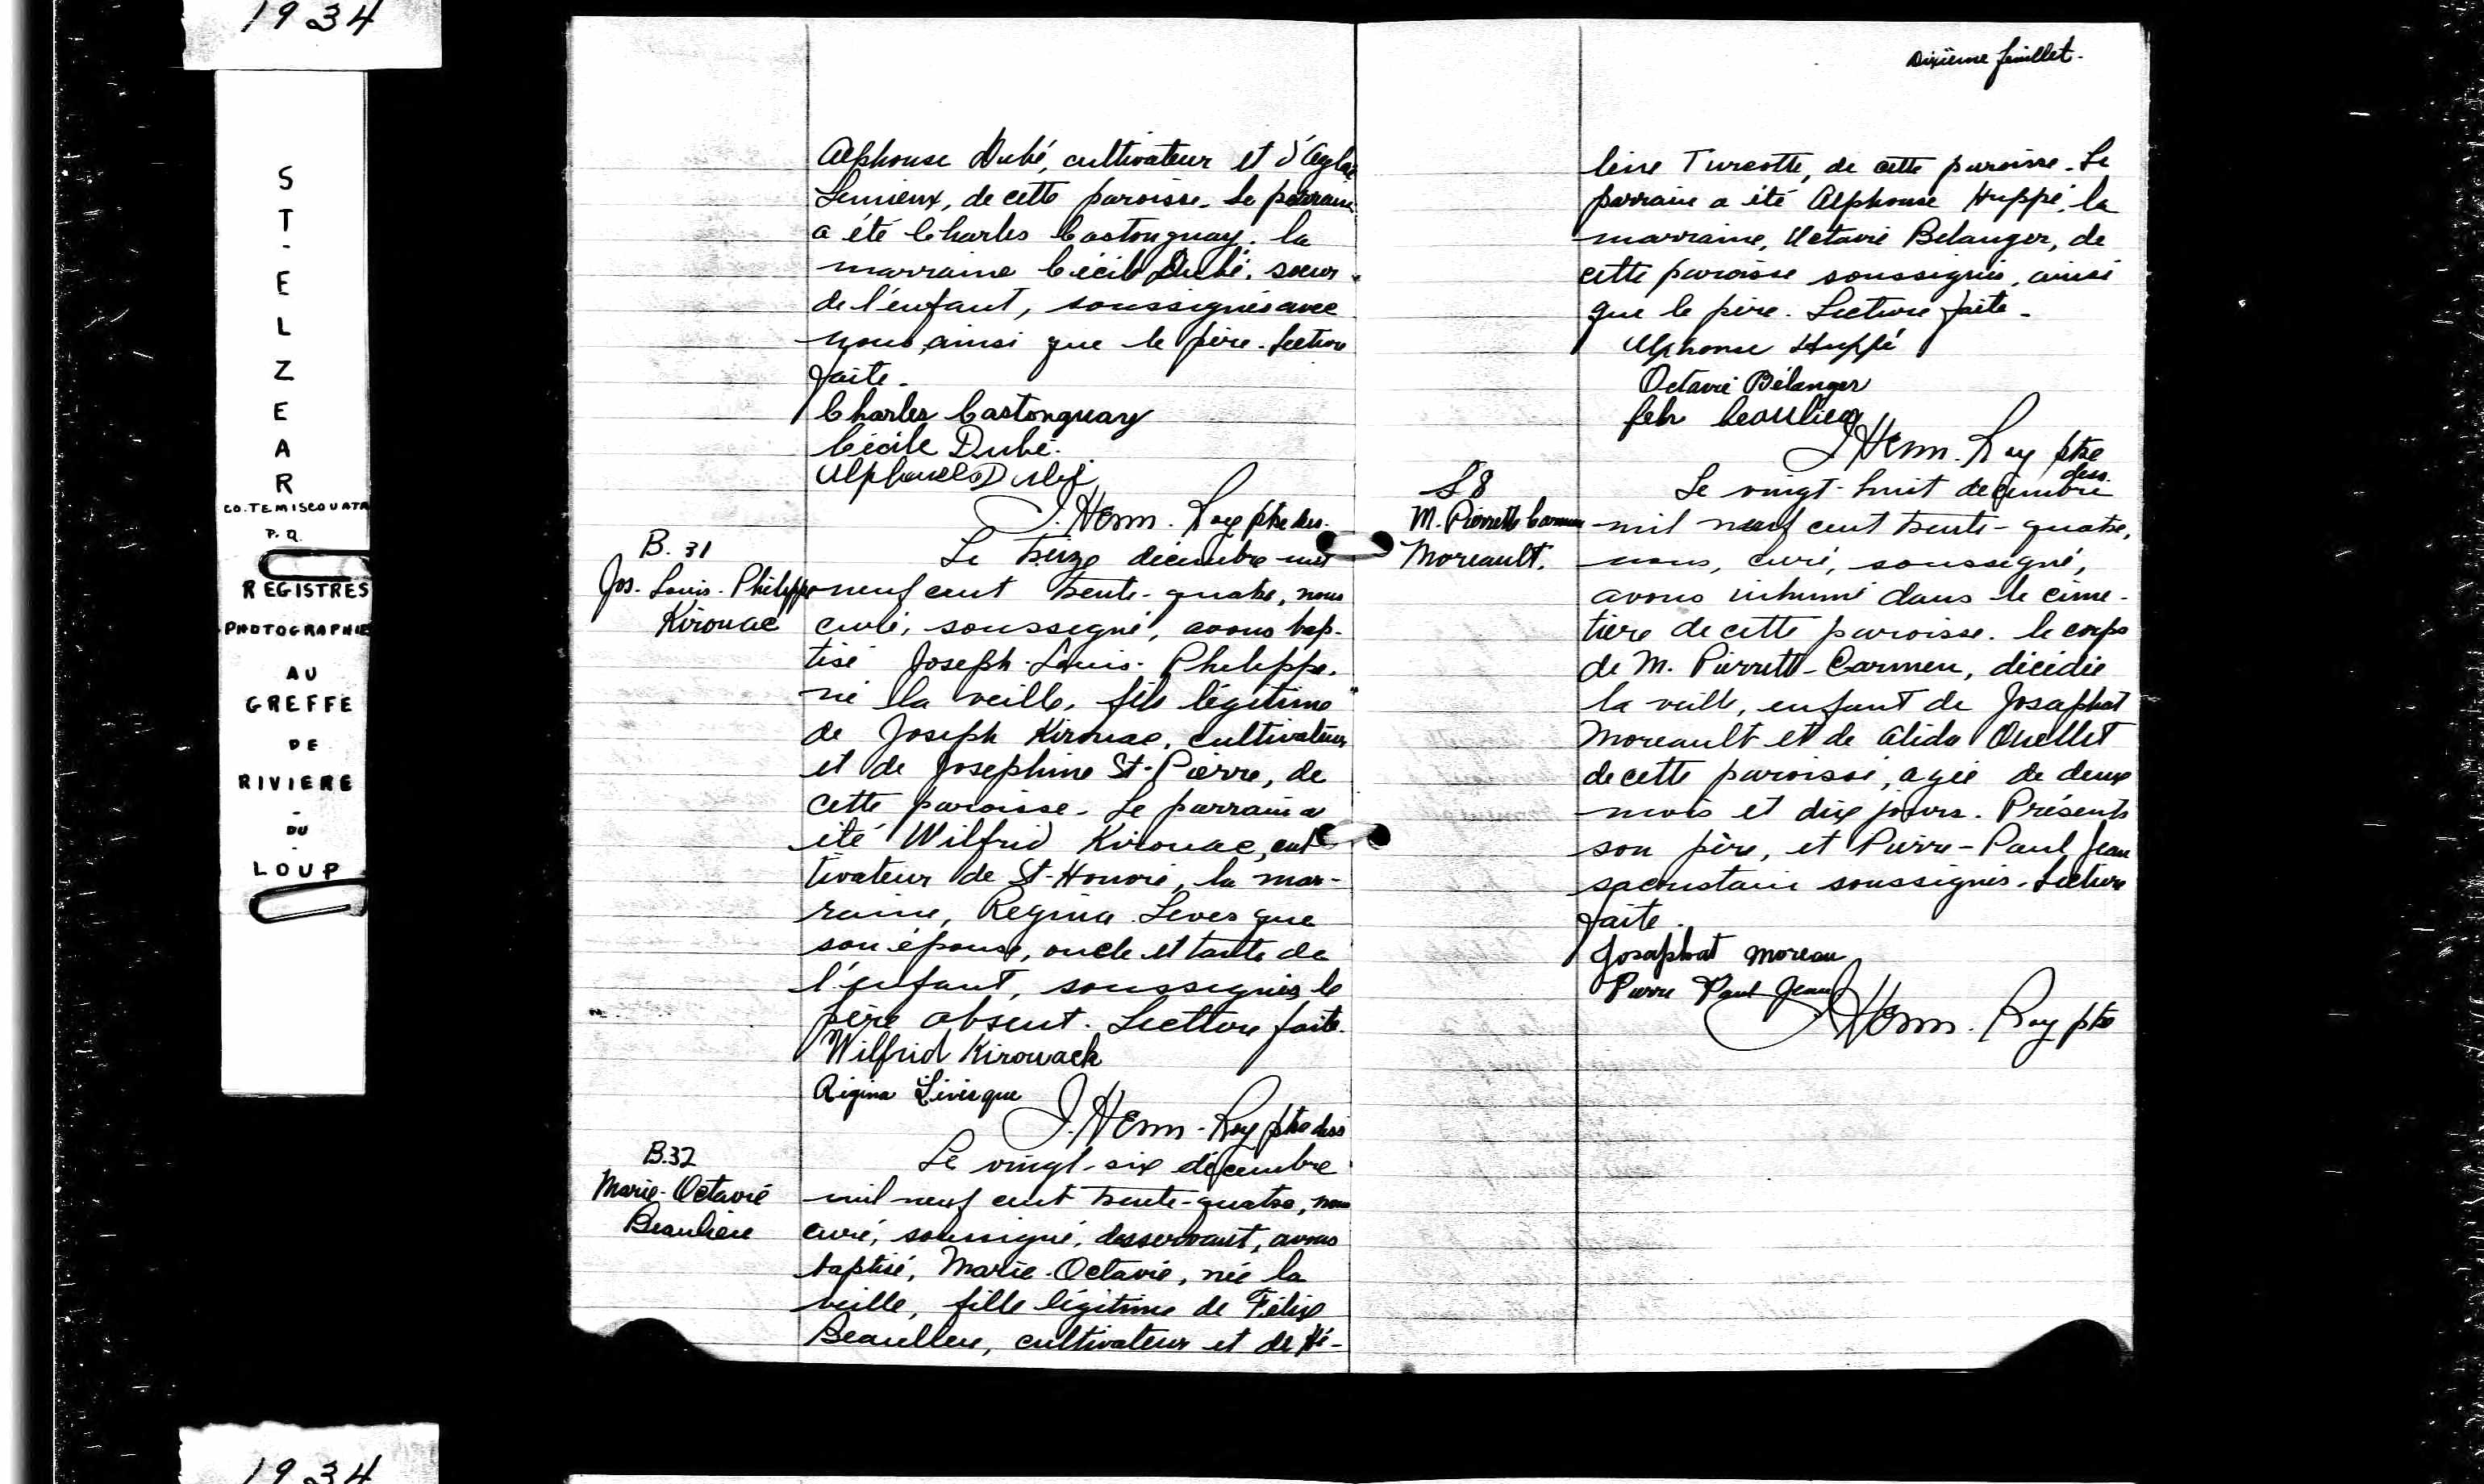 1934
S
T
-
E
L
Z
E
A
R
CO. TEMISCOUATA
P.Q.
REGISTRES
PHOTOGRAPHIE
AU
GREFFE
DE
RIVIERE
-
DU
-
LOUP
1934
Alphonse Dubé, cultivateur et d'Aglaé
Lemieux, de cette paroisse. Le parrain
a été Charles Castonguay, la
marraine Cécile Dubé, soeur
de l'enfant, soussignés avec
nous, ainsi que le père. Lecture
faite.
Charles Castonguay
Cécile Dubé.
Alphonse Dubé
J. Herm. Roy ptre des.
B. 31
Jos. Louis. Philippe
Kirouac
Le treize décembre mil
neuf cent trente-quatre, nous
curé, soussigné, avons bap-
tisé Joseph-Louis-Philippe,
né la veille, fils légitime
de Joseph Kirouac, cultivateur
et de Josephine St-Pierre, de
cette paroisse. Le parrain a
été Wilfrid Kirouac, cul
tivateur de St-Honoré, la mar-
raine, Régina Levesque
son épouse, oncle et tante de
l'enfant, soussignés le
père absent. Lecture faite.
Wilfrid Kirouack
Régina Lévesque
J. Herm. Roy ptre dess
B.32
Marie-Octavie
Beaulieu
Le vingt-six décembre
mil neuf cent trente-quatre, nous
curé, soussigné, desservant, avons
baptisé, Marie-Octavie, née la
veille, fille légitime de Félix
Beaulieu, cultivateur et de Hé-
Dixième feuillet.
lène Turcotte, de cette paroisse. Le
parrain a été Alphonse Huppé, la
marraine, Octavie Belanger, de
cette paroisse soussignés, ainsi
que le père. Lecture faite.
Alphonse Huppé
Octavie Bélanger
felix beaulieu
J Herm. Roy ptre
dess.
S 8
M. Pierrette Carmen
Moreault.
Le vingt-huit décembre
mil neuf cent trente-quatre,
nous, curé, soussigné,
avons inhumé dans le cime-
tière de cette paroisse. le corps
de M. Pierrette-Carmen, décédée
la veille, enfant de Josaphat
Moreault et de Alida Ouellet
de cette paroisse, agée de deux
mois et dix jours. Présents
son père, et Pierre-Paul Jean
sacristain soussignés. Lecture
faite.
Josaphat Moreau
Pierre Paul Jean
J. Herm. Roy ptre